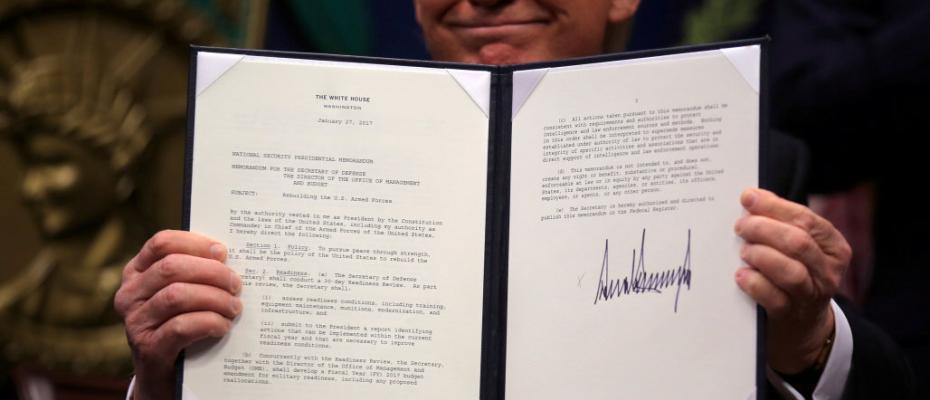 THE WHITE HOUSE
WASHINGTON
January 27, 2017
NATIONAL SECURITY PRESIDENTIAL MEMORANDUM
MEMORANDUM FOR THE SECRETARY OF DEFENSE
THE DIRECTOR OF THE OFFICE OF MANAGEMENT
AND BUDGET
SUBJECT: Rebuilding the U.S. Armed Forces
By the authority vested in me as President by the Constitution
and the laws of the United States, including my authority as
Commander in Chief of the Armed Forces of the United States,
I hereby direct the following:
Section 1. Policy. To pursue peace through strength,
it shall be the policy of the United States to rebuild the
U.S. Armed Forces.
Sec. 2. Readiness. (a) The Secretary of Defense
(Secretary) shall conduct a 30-day Readiness Review. As part
of this review, the Secretary shall:
(i) assess readiness conditions, including training,
equipment maintenance, munitions, modernization, and
infrastructure; and
(ii) submit to the President a report identifying
actions that can be implemented within the current
fiscal year and that are necessary to improve
readiness conditions.
(b) Concurrently with the Readiness Review, the Secretary,
together with the Director of the Office of Management and
Budget (OMB), shall develop a Fiscal Year (FY) 2017 budget
amendment for military readiness, including any proposed
reallocations.
3
(c) All actions taken pursuant to this memorandum shall be
consistent with requirements and authorities to protect
intelligence and law enforcement sources and methods. Nothing
in this order shall be interpreted to supersede measures
established under authority of law to protect the security and
integrity of specific activities and associations that are in
direct support of intelligence and law enforcement operations.
(d) This memorandum is not intended to, and does not,
create any right or benefit, substantive or procedural,
enforceable at law or in equity by any party against the United
States, its departments, agencies, or entities, its officers,
employees, or agents, or any other person.
(e) The Secretary is hereby authorized and directed to
publish this memorandum in the Federal Register.